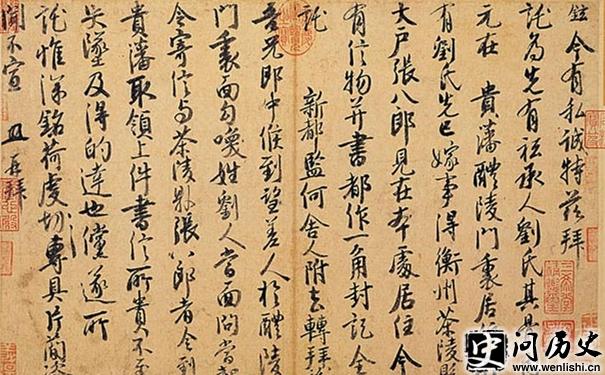 鉉今有私誠特茲拜
託為先有祗承人劉氏其骨
元在 貴藩醴陵門裏居
有劉氏先已嫁事得衡州茶陵縣
大戶張八郎見在本處居住今
有信物并書都作一角封記全
託 新都監何舍人附去轉拜
吾兄郎中候到望差人於醴陵
門裏面勾喚姓劉人當面問當
令寄信与茶陵縣張八郎者令到
貴藩取領上件書信所貴不至
失墜及得的達也儻遂所
託惟深銘荷虔切專具片簡諮
聞不宣 鉉再拜
问历史
www.wenlishi.cn